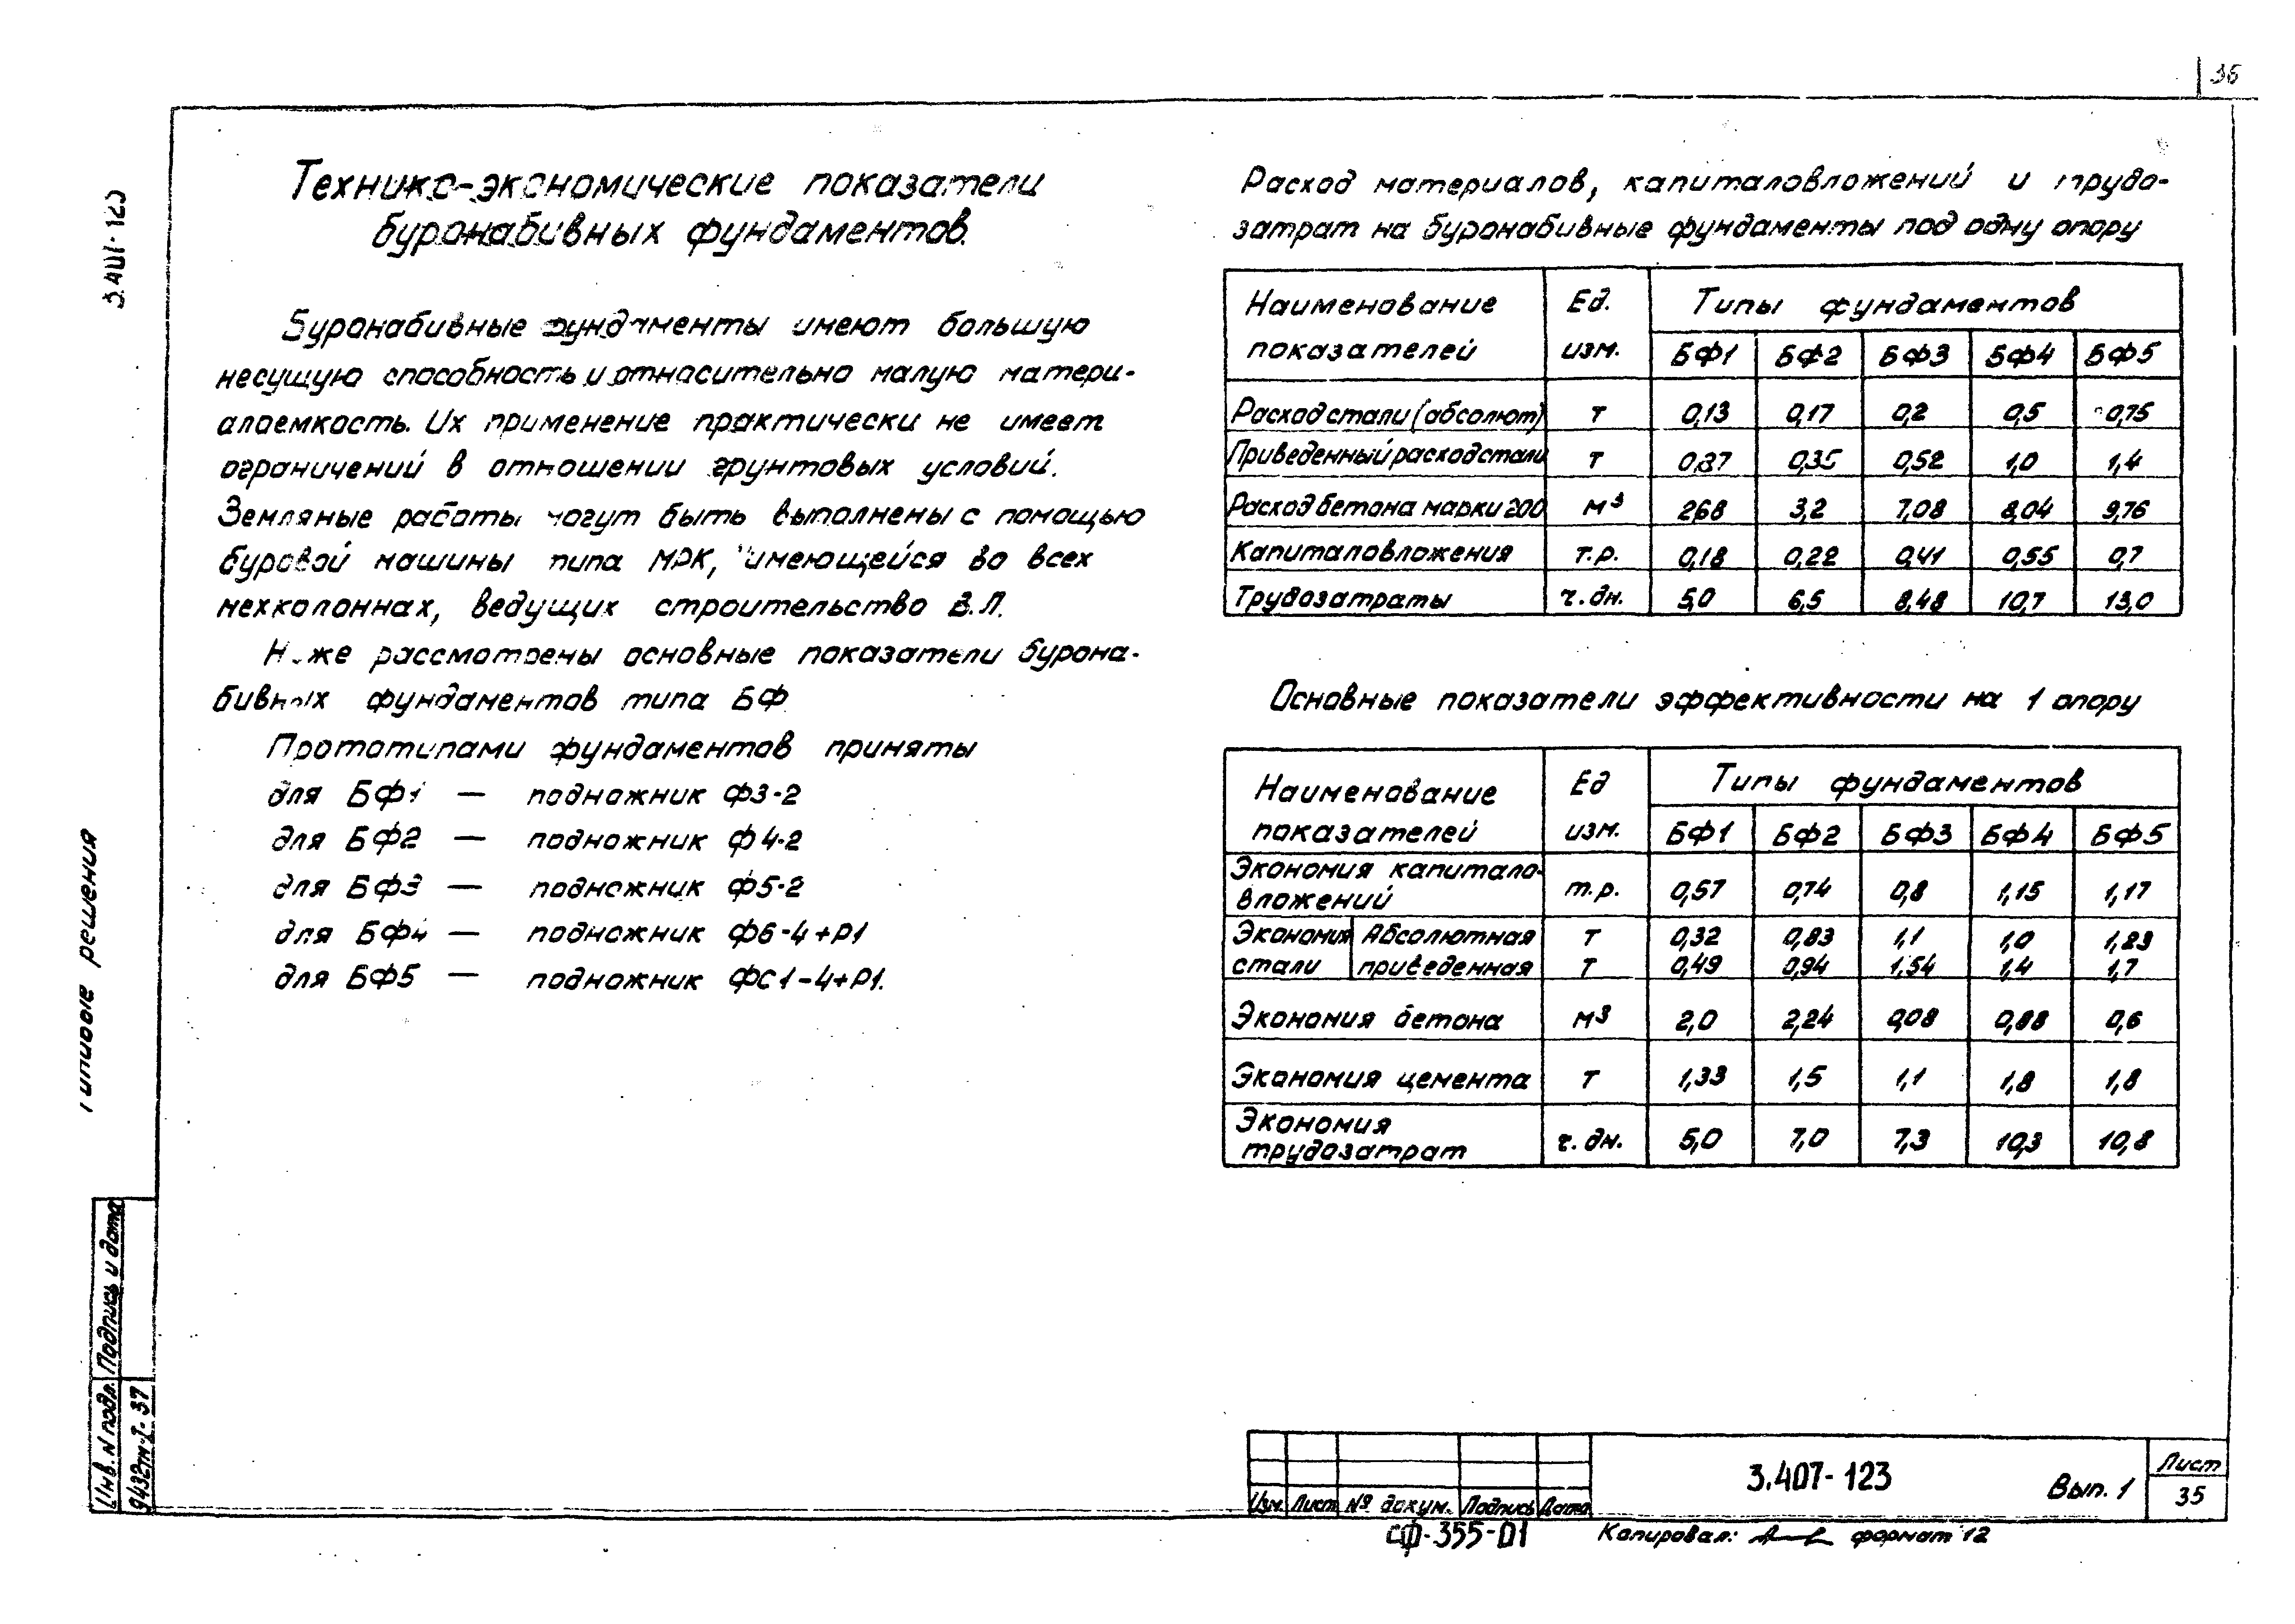 36
Технико-экономические показатели
буронабивных фундаментов.
Буронабивные фундаменты имеют большую
несущую способность и относительно малую матери-
алоемкость. Их применение практически не имеет
ограничений в отношении грунтовых условий.
Земляные работы могут быть выполнены с помощью
буровой машины типа МРК, имеющейся во всех
мехколоннах, ведущих строительство В.Л.
Ниже рассмотрены основные показатели бурона-
бивных фундаментов типа БФ
Прототипами фундаментов приняты
для БФ1 — подножник Ф3-2
для БФ2 — подножник Ф4-2
для БФ3 — подножник Ф5-2
для БФ4 — подножник Ф6-4+Р1
для БФ5 — подножник ФС1-4+Р1.
Расход материалов, капиталовложений и трудо-
затрат на буронабивные фундаменты под одну опору
Наименование показателей Ед. изм. Типы фундаментов
БФ1 БФ2 БФ3 БФ4 БФ5
Расход стали (абсолют) т 0,13 0,17 0,2 0,5 0,75
Приведенный расход стали т 0,35 0,52 1,0 1,4
Расход бетона марки 200 м³ 2,68 3,2 7,08 8,04 9,76
Капиталовложения т.р. 0,18 0,22 0,41 0,55 0,7
Трудозатраты ч.дн. 5,0 6,5 8,48 10,7 13,0
Основные показатели эффективности на 1 опору
Наименование показателей Ед изм. Типы фундаментов
БФ1 БФ2 БФ3 БФ4 БФ5
Экономия капитало-
вложений т.р. 0,57 0,74 0,8 1,15 1,17
Экономия стали Абсолютная т 0,32 0,83 1,1 1,0 1,23
приведенная т 0,49 0,94 1,54 1,4 1,7
Экономия бетона м³ 2,0 2,24 0,08 0,88 0,6
Экономия цемента т 1,33 1,5 1,1 1,8 1,8
Экономия
трудозатрат ч.дн. 5,0 7,0 7,3 10,3 10,8
Типовые решения
Инв. N подл. Подпись и дата
9432тм-I-37
Изм. Лист № докум. Подпись Дата
3.407-123 Вып. 1
Лист
35
СФ-355-01
Копировал: формат 12